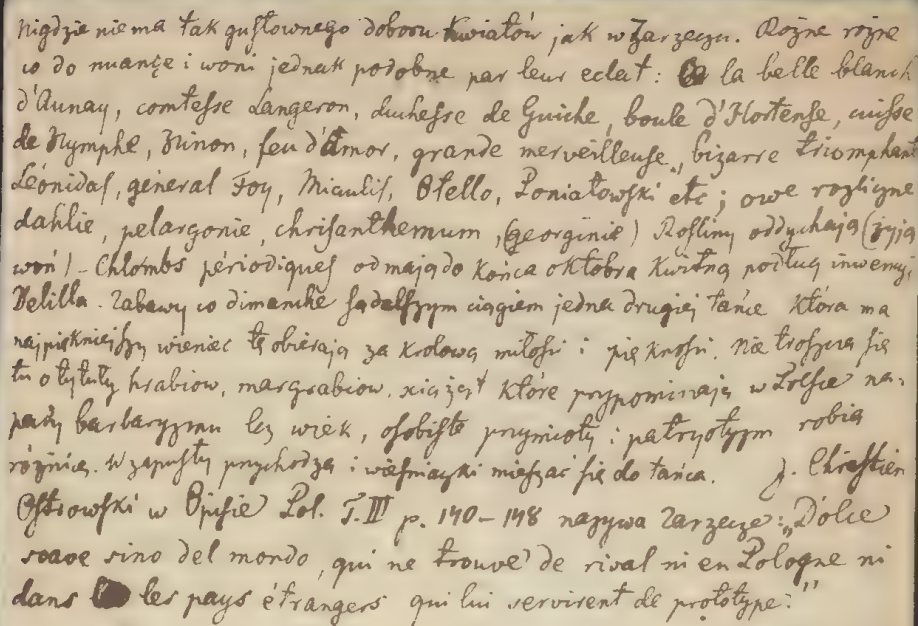 Nigdzie nie ma tak gustownego doboru kwiatów jak w Zarzeczu. Różne różne
co do nuançe i woni jednak podobne par leur eclat: la belle blanch
d'Aunay, comtesse Langeron, duchesse de Guiche, boule d'Hortense, cuisse
de Nymphe, Ninon, feu d'Amor, grande merveilleuse, bizarre triomphant
Léonidas, général Foy, Miaulis, Otello, Poniatowski etc; owe rozliczne
dahlie, pelargonie, chrisanthemum, (georginie) Rośliny oddychają (żyją
woń) - Chlombs périodiques od maja do końca oktobra kwitną podług inwencji
Delilla. Zabawy co dimanche są dalszym ciągiem jedna drugiej tańce która ma
najpiękniejszy wieniec tę obierają za królową miłości i piękności. Nie troszczą się
tu o tytuły hrabiow, margrabiow, książąt które przypominają w Polsce na-
pady barbaryzmu lecz wiek, osobiste przymioty i patryotyzm robią
różnicę. W zapusty przychodzą i wieśniaczki mieszać się do tańca. J. Chrestien
Ostrowski w Opisie Pol. T. III p. 140-148 nazywa Zarzecze: „Dolce
soave sino del mondo, qui ne trouve de rival ni en Pologne ni
dans les pays étrangers qui lui servirent de prototype."